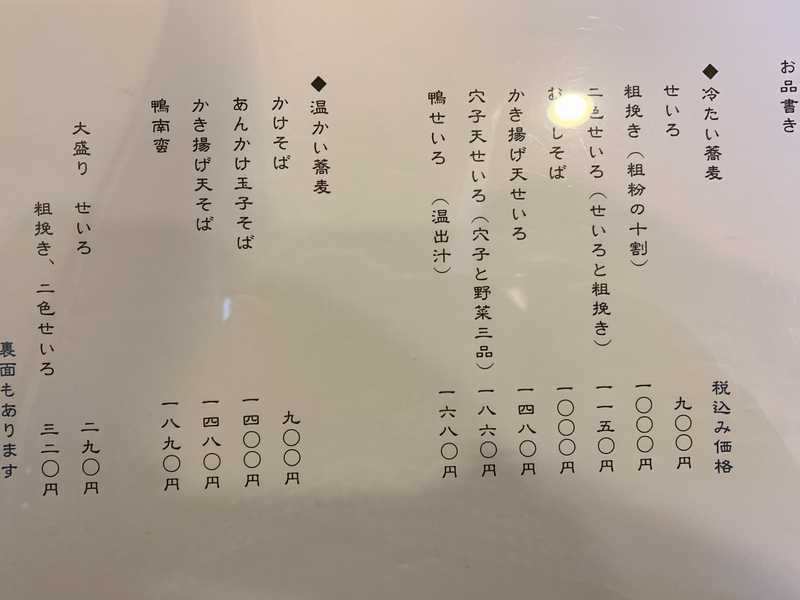 お品書き
◆冷たい蕎麦 税込み価格
せいろ 九〇〇円
粗挽き（粗粉の十割） 一〇〇〇円
二色せいろ（せいろと粗挽き） 一一五〇円
しそば 一〇〇〇円
かき揚げ天せいろ 一四八〇円
穴子天せいろ（穴子と野菜三品） 一八六〇円
鴨せいろ（温出汁） 一六八〇円
◆温かい蕎麦
かけそば 九〇〇円
あんかけ玉子そば 一四〇〇円
かき揚げ天そば 一四八〇円
鴨南蛮 一八九〇円
大盛り せいろ 二九〇円
粗挽き、二色せいろ 三二〇円
裏面もあります